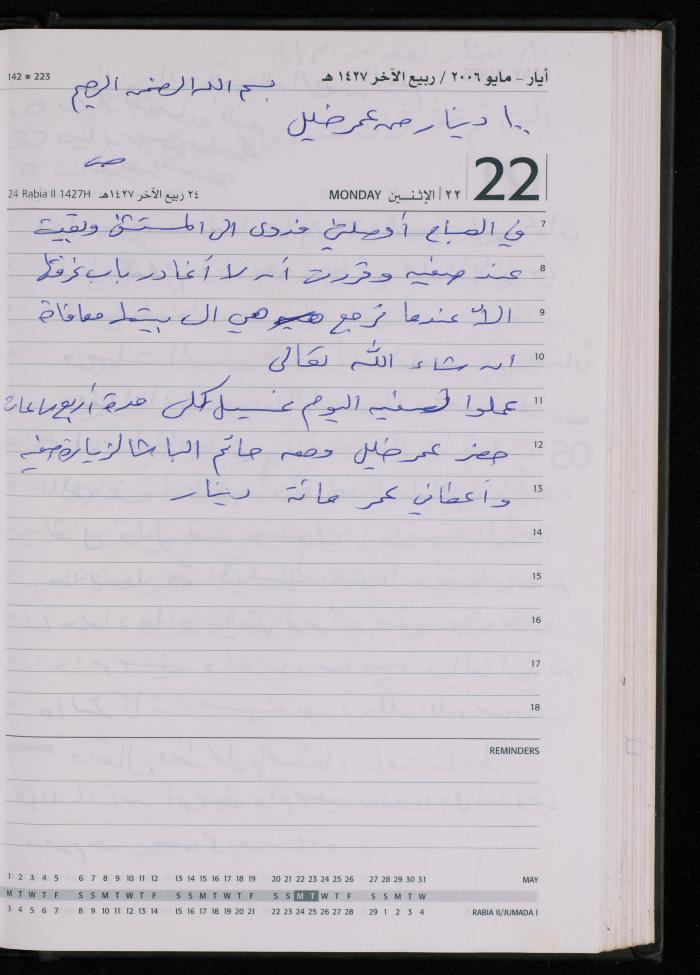 142 ■ 223
أيار - مايو ٢٠٠٦ / ربيع الآخر ١٤٢٧ هـ
بسم الله الرحمن الرحيم
١٠٠ دينار من عمر خليل
24 Rabia II 1427H ٢٤ ربيع الآخر ١٤٢٧هـ
MONDAY ٢٢ | الإثنـــين
22
7 في الصباح أوصلني فدوى الى المستشفى وبقيت
8 عند صفيه وقررت أن لا أغادر باب غرفتها
9 الا عندما ترجع هي الى بيتها معافاة
10 ان شاء الله تعالى
11 عملوا لصفيه اليوم غسيل كلى مدة أربع ساعات
12 حضر عمر خليل ومعه حاتم الباشا لزيارة صفيه
13 وأعطاني عمر مائة دينار
14
15
16
17
18
REMINDERS
1 2 3 4 5 6 7 8 9 10 11 12 13 14 15 16 17 18 19 20 21 22 23 24 25 26 27 28 29 30 31 MAY
M T W T F S S M T W T F S S M T W T F S S M T W T F S S M T W
3 4 5 6 7 8 9 10 11 12 13 14 15 16 17 18 19 20 21 22 23 24 25 26 27 28 29 1 2 3 4 RABIA II/JUMADA I